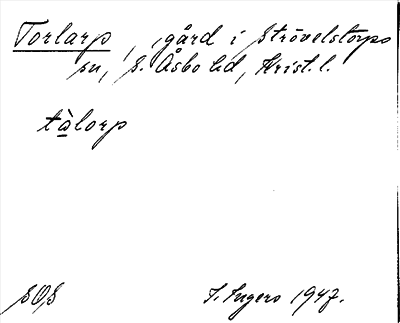 Torlarp, gård i Strövelstorps
sn, S. Åsbo hd, Krist. l.
tàlorp
SOS
I. Ingers 1947.